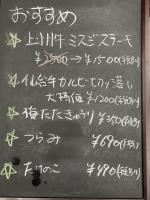 おすすめ
☆ 上州牛ミスジステーキ
¥2500→¥1500(税別)
☆ 仙台牛カルビ切り落し
大特価¥1200(税別)
☆ 梅たたききゅうり¥350(税別)
☆ つらみ ¥690(税別)
☆ たけのこ ¥490(税別)